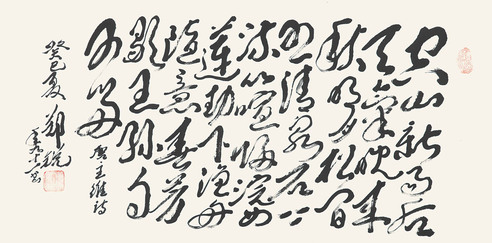 空山新雨后
天氣晚来
秋明月松间
照清泉石上
流竹喧归浣女
莲动下渔舟
随意春芳
歇王孙自
可留 唐王維诗
癸巳夏 郑锐
年九十二